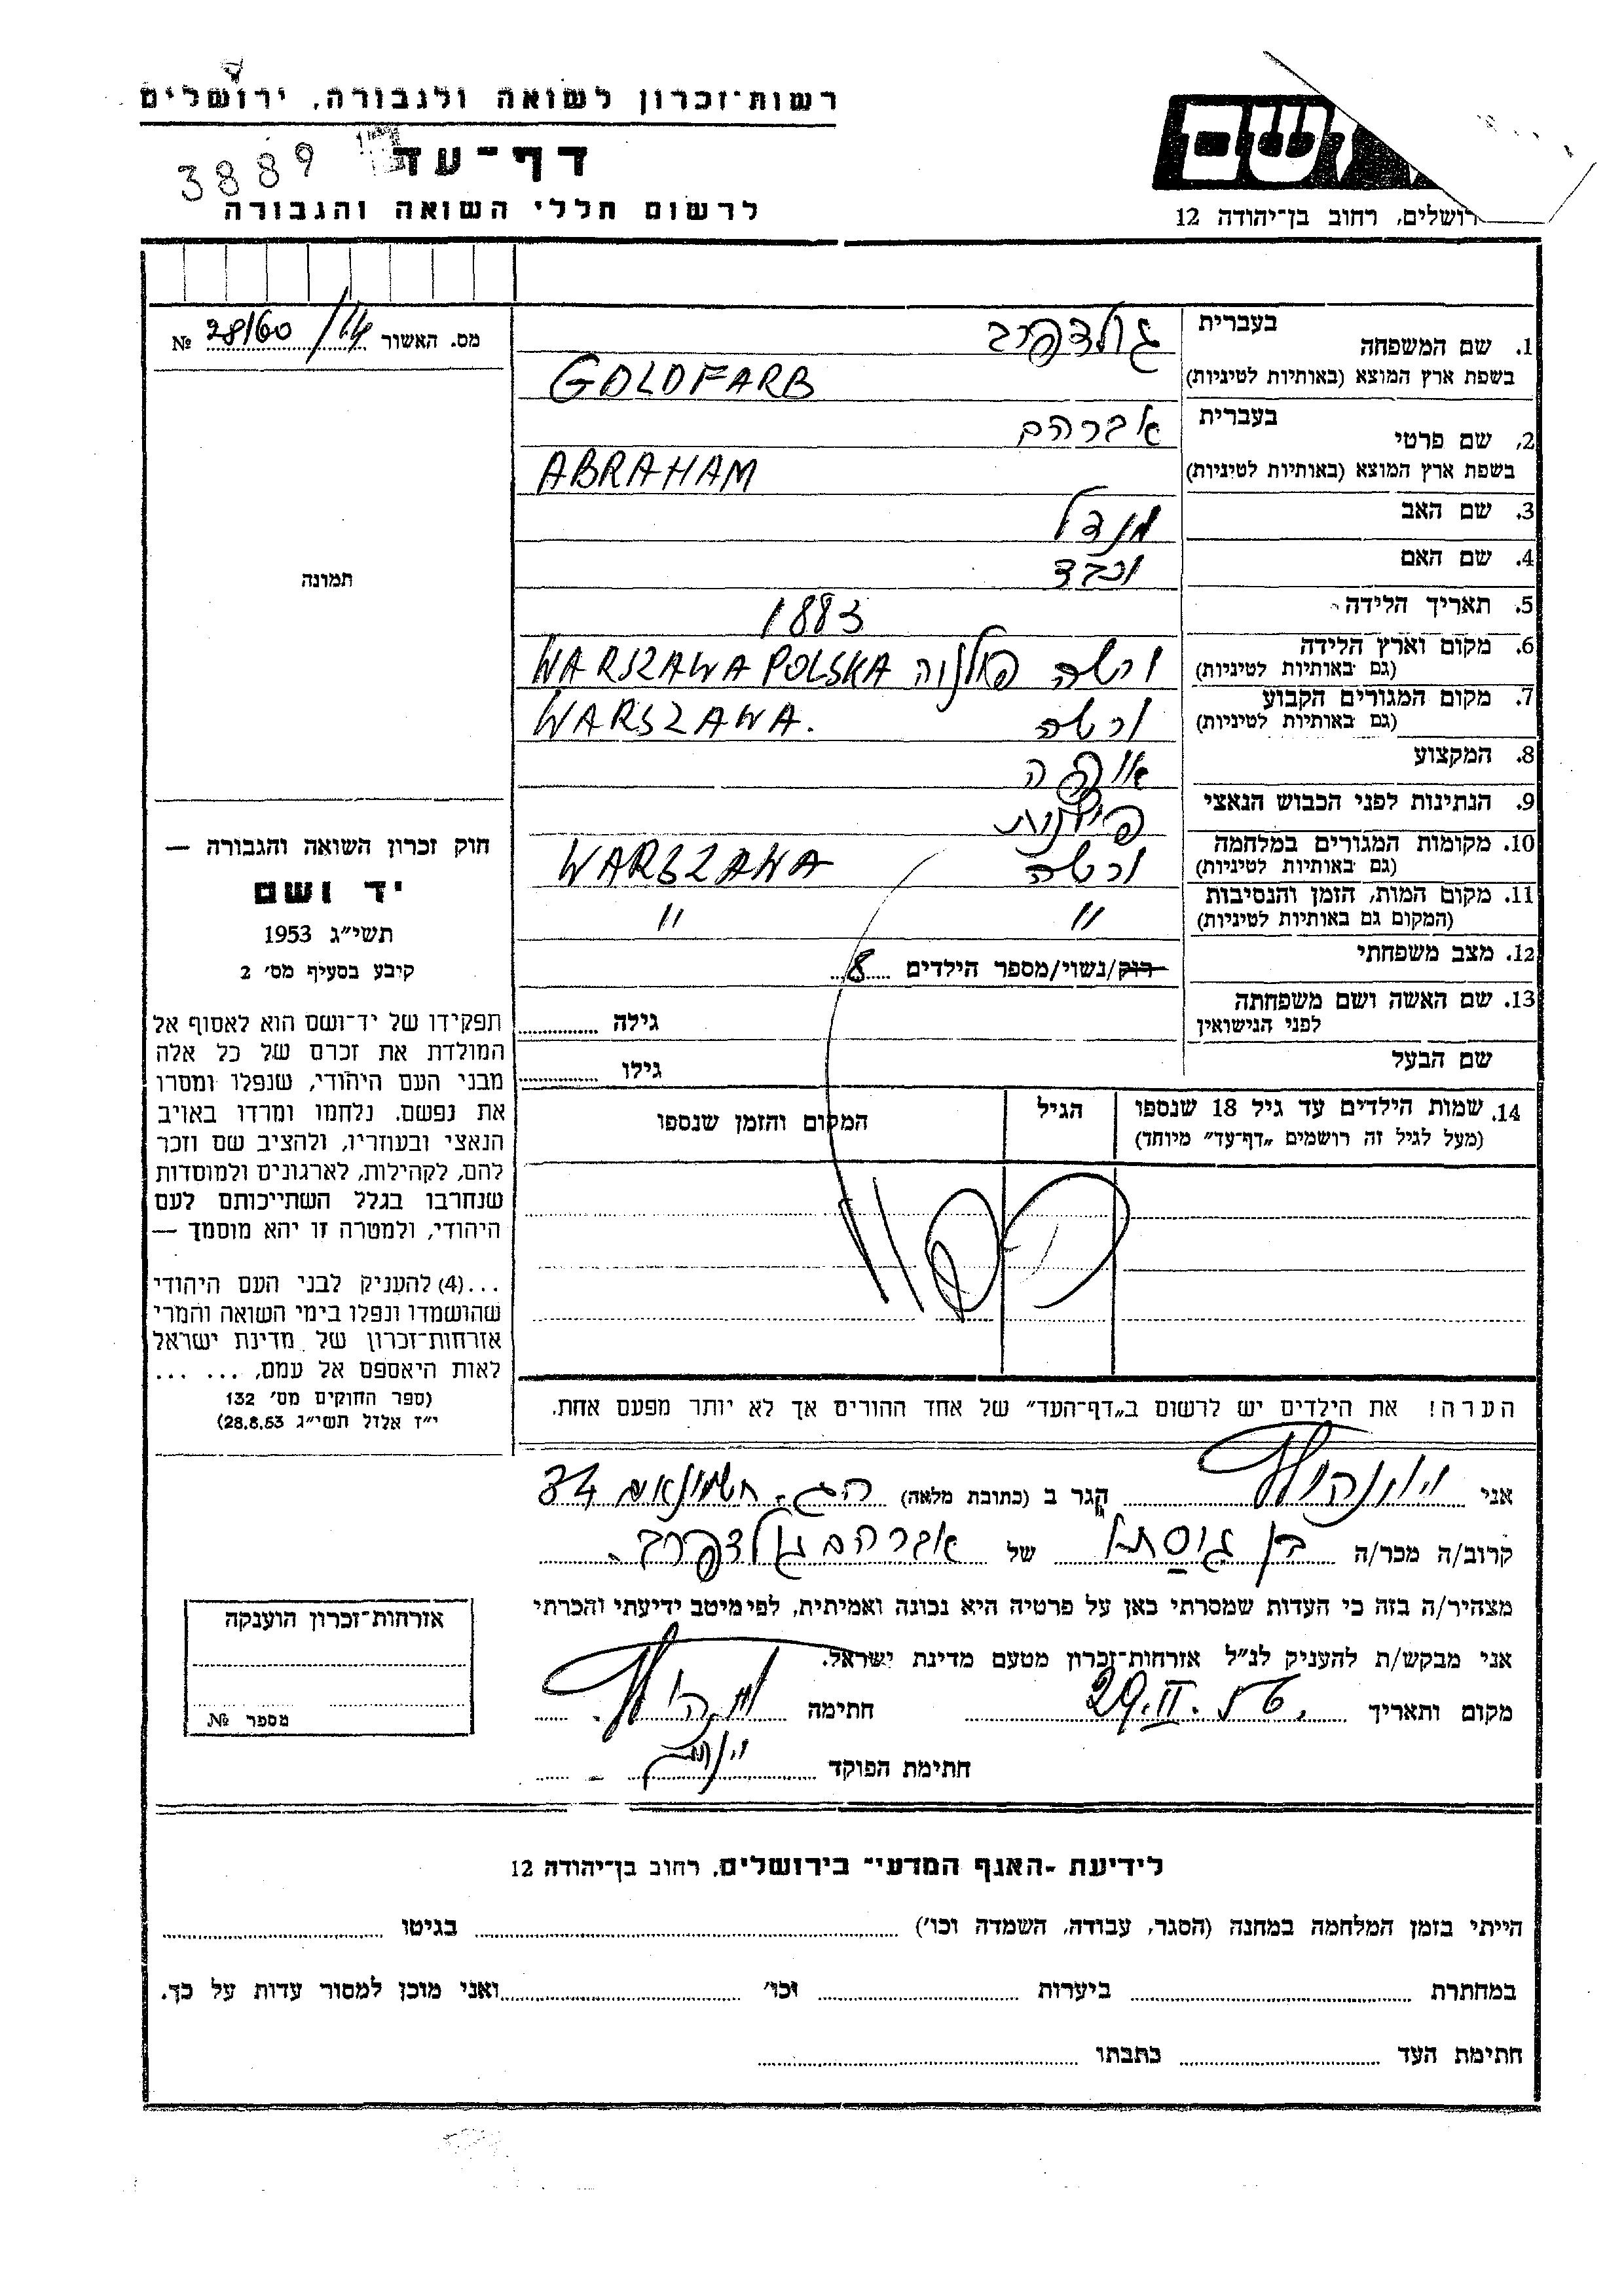 רשות־זכרון לשואה ולגבורה, ירושלים
דף־עד
3889
לרשום חללי השואה והגבורה
ושם
ירושלים, רחוב בן־יהודה 12
מס. האשור 28/60 /14 №
1. שם המשפחה בעברית גולדפרב
בשפת ארץ המוצא (באותיות לטיניות) GOLDFARB
2. שם פרטי בעברית אברהם
בשפת ארץ המוצא (באותיות לטיניות) ABRAHAM
3. שם האב מנדל
4. שם האם
5. תאריך הלידה 1883
6. מקום וארץ הלידה
(גם באותיות לטיניות) ורשה פולניה WARSZAWA POLSKA
7. מקום המגורים הקבוע
(גם באותיות לטיניות) ורשה WARSZAWA.
8. המקצוע אופה
9. הנתינות לפני הכבוש הנאצי
10. מקומות המגורים במלחמה
(גם באותיות לטיניות) ורשה WARSZAWA
11. מקום המות, הזמן והנסיבות
(המקום גם באותיות לטיניות) " "
12. מצב משפחתי רוק/נשוי/מספר הילדים 8
13. שם האשה ושם משפחתה
לפני הנישואין גילה
שם הבעל גילו
14. שמות הילדים עד גיל 18 שנספו הגיל המקום והזמן שנספו
(מעל לגיל זה רושמים „דף־עד" מיוחד)
תמונה
חוק זכרון השואה והגבורה —
יד ושם
תשי"ג 1953
קיבע בסעיף מס' 2
תפקידו של יד־ושם הוא לאסוף אל
המולדת את זכרם של כל אלה
מבני העם היהודי, שנפלו ומסרו
את נפשם. נלחמו ומרדו באויב
הנאצי ובעוזריו, ולהציב שם וזכר
להם, לקהילות, לארגונים ולמוסדות
שנחרבו בגלל השתייכותם לעם
היהודי, ולמטרה זו יהא מוסמך —
...(4) להעניק לבני העם היהודי
שהושמדו ונפלו בימי השואה והמרי
אזרחות־זכרון של מדינת ישראל
לאות היאספם אל עמם. ... ...
(ספר החוקים מס' 132
י"ז אלול תשי"ג 28.8.53)
הערה! את הילדים יש לרשום ב„דף־העד" של אחד ההורים אך לא יותר מפעם אחת.
אני הגר ב (כתובת מלאה) 34
קרוב/ה מכר/ה של אברהם גולדפרב.
מצהיר/ה בזה כי העדות שמסרתי כאן על פרטיה היא נכונה ואמיתית, לפי מיטב ידיעתי והכרתי
אני מבקש/ת להעניק לנ"ל אזרחות־זכרון מטעם מדינת ישראל.
מקום ותאריך 29.II.56. חתימה
חתימת הפוקד
אזרחות־זכרון הוענקה
מספר №
לידיעת -האגף המדעי־ בירושלים. רחוב בן־יהודה 12
הייתי בזמן המלחמה במחנה (הסגר, עבודה, השמדה וכו') בגיטו
במחתרת ביערות וכו' ואני מוכן למסור עדות על כך.
חתימת העד כתבתו